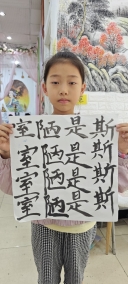 室陋是斯
室陋是斯
室陋是斯
室陋是斯